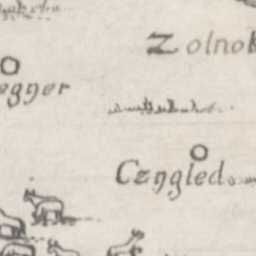 Zolnok
egner
Czngled